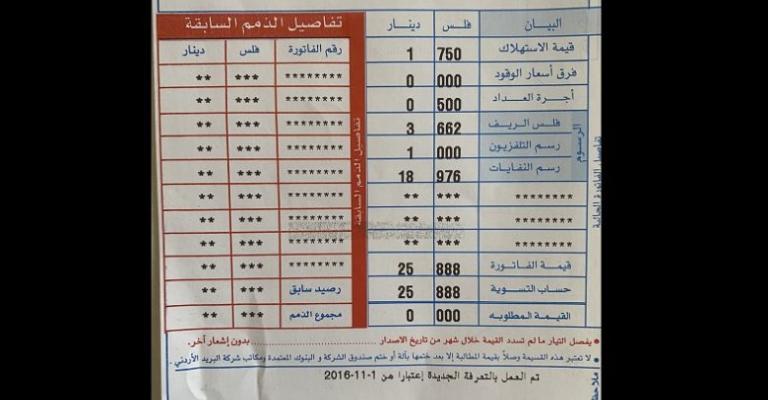 البيان فلس دينار
قيمة الاستهلاك 750 1
فرق أسعار الوقود 000 0
أجرة العداد 500 0
فلس الريف 662 3
رسم التلفزيون 000 1
رسم النفايات 976 18
******** *** **
******** *** **
******** *** **
قيمة الفاتورة 888 25
حساب التسوية 888 25
القيمة المطلوبه 000 0
الرسوم
تفاصيل الفاتورة الحالية
تفاصيل الذمم السابقة
رقم الفاتورة فلس دينار
******** *** **
******** *** **
******** *** **
******** *** **
******** *** **
******** *** **
******** *** **
******** *** **
******** *** **
رصيد سابق *** **
مجموع الذمم *** **
تفاصيل الذمم السابقة
يفصل التيار ما لم تسدد القيمة خلال شهر من تاريخ الاصدار بدون إشعار آخر.
لا تعتبر هذه القسيمة وصلاً بقيمة المطالبة إلا بعد ختمها بآلة أو ختم صندوق الشركة و البنوك المعتمدة ومكاتب شركة البريد الأردني
تم العمل بالتعرفة الجديدة إعتبارا من 1-11-2016